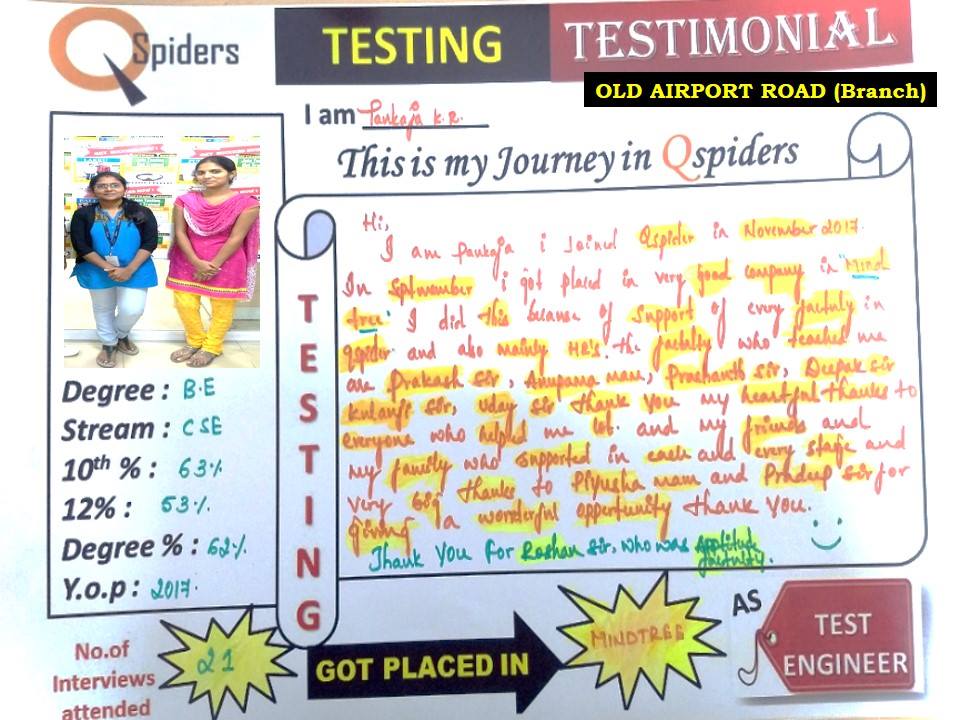 QSpiders
TESTING
TESTIMONIAL
OLD AIRPORT ROAD (Branch)
I am Pankaja K.R.
This is my Journey in Qspiders
Hi,
I am Pankaja i Joined Qspider in November 2017.
In Septwember i got placed in very good company in "Mind
tree" I did this because of support of every factuly in
Qspider and also mainly HR's. the factulty who teached me
are Prakash sir, Anupama mam, Prashanth sir, Deepak sir
kulanji sir, uday sir thank you my heartful thanks to
everyone who helped me lot. and my friends and
my family who supported in each and every stage and
very big thanks to Piyusha mam and Pradeep sir for
giving a wonderful opportunity thank you.
Thank you for Roshan sir, who was Aptitude
TESTING
Degree : B.E
Stream : CSE
10th % : 63%
12% : 53%
Degree % : 62%
Y.o.p : 2017.
No.of
Interviews
attended
21
GOT PLACED IN
MINDTREE
AS
TEST
ENGINEER